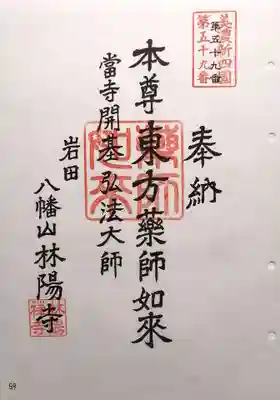 美濃新四國
第五十九番
第五十九番
奉納
本尊東方藥師如來
當寺開基弘法大師
岩田
八幡山林陽寺
59